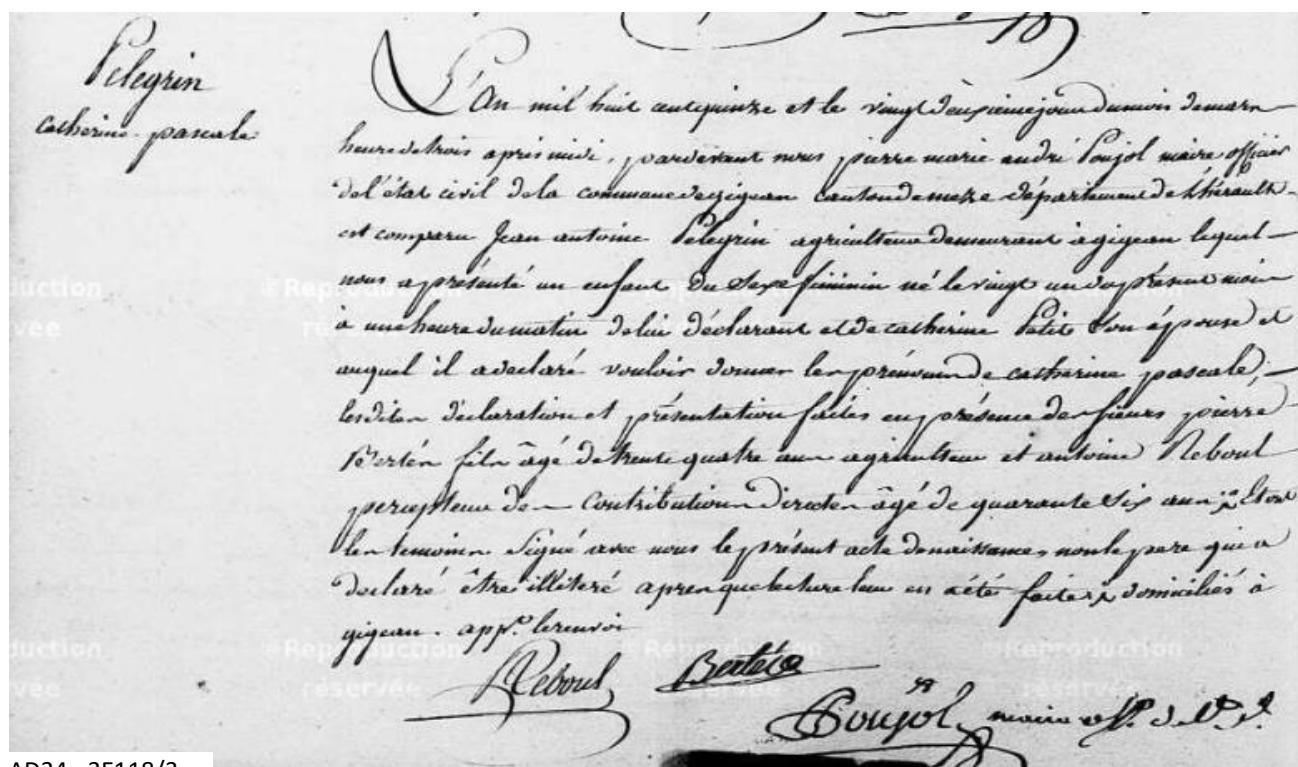 Pelegrin
catherine pascale
L'An mil huit cent quinze et le vingt deuxieme jour du mois de mars
heure de trois apres midi, pardevant nous pierre marie andré Poujol maire officier
de l'état civil de la commune de gigean canton de meze département de l'hérault
est comparu Jean antoine Pelegrin agriculteur demeurant à gigean lequel
nous a présenté un enfant du Sexe féminin né le vingt un du présent mois
à une heure du matin de lui déclarant et de catherine Petit Son épouse et
auquel il a declaré vouloir donner les prénoms de catherine pascale,
lesdites déclaration et présentation faites en présence des sieurs pierre
fils âgé de trente quatre ans agriculteur et antoine Reboul
percepteur des Contributions directes âgé de quarante Six ans Et ont
les temoins Signé avec nous le présent acte de naissance, non le pere qui a
declaré être illiteré apres que lecture leur en a été faite domiciliés à
gigean. app.é le renvoi
Reboul
Poujol maire
©Reproduction
réservée
AD34 - 2E118/2